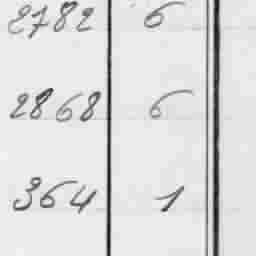 2782 6
2868 6
364 1